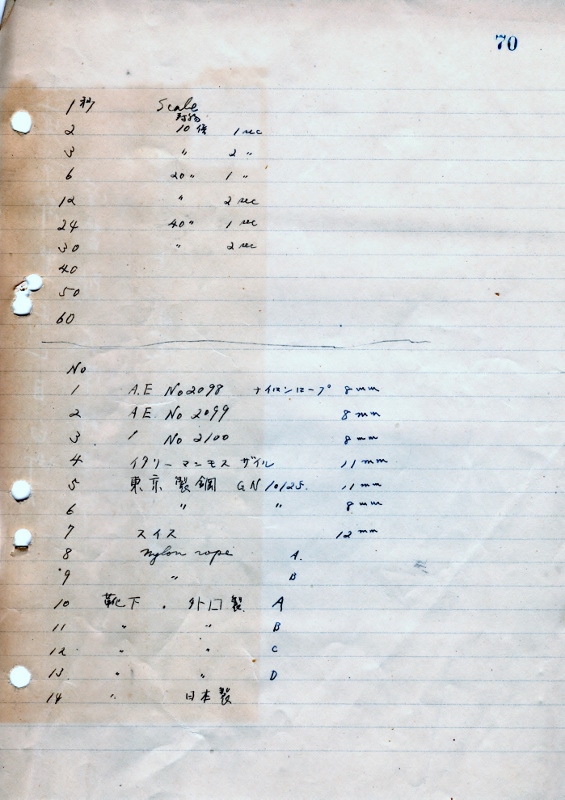 70
1 秒 Scale
対物
2 10倍 1 sec
3 〃 2 〃
6 20〃 1 〃
12 〃 2 sec
24 40〃 1 sec
30 〃 2 sec
40
50
60
No
1 A.E No 2098 ナイロンロープ 8 mm
2 A.E. No 2099 8 mm
3 〃 No 2100 8 mm
4 イタリーマンモス ザイル 11 mm
5 東京製鋼 GN 10125. 11 mm
6 〃 〃 8 mm
7 スイス 12 mm
8 nylon rope A.
9 〃 B
10 靴下 . 外口製 A
11 〃 〃 B
12 〃 〃 C
13 〃 〃 D
14 〃 日本製